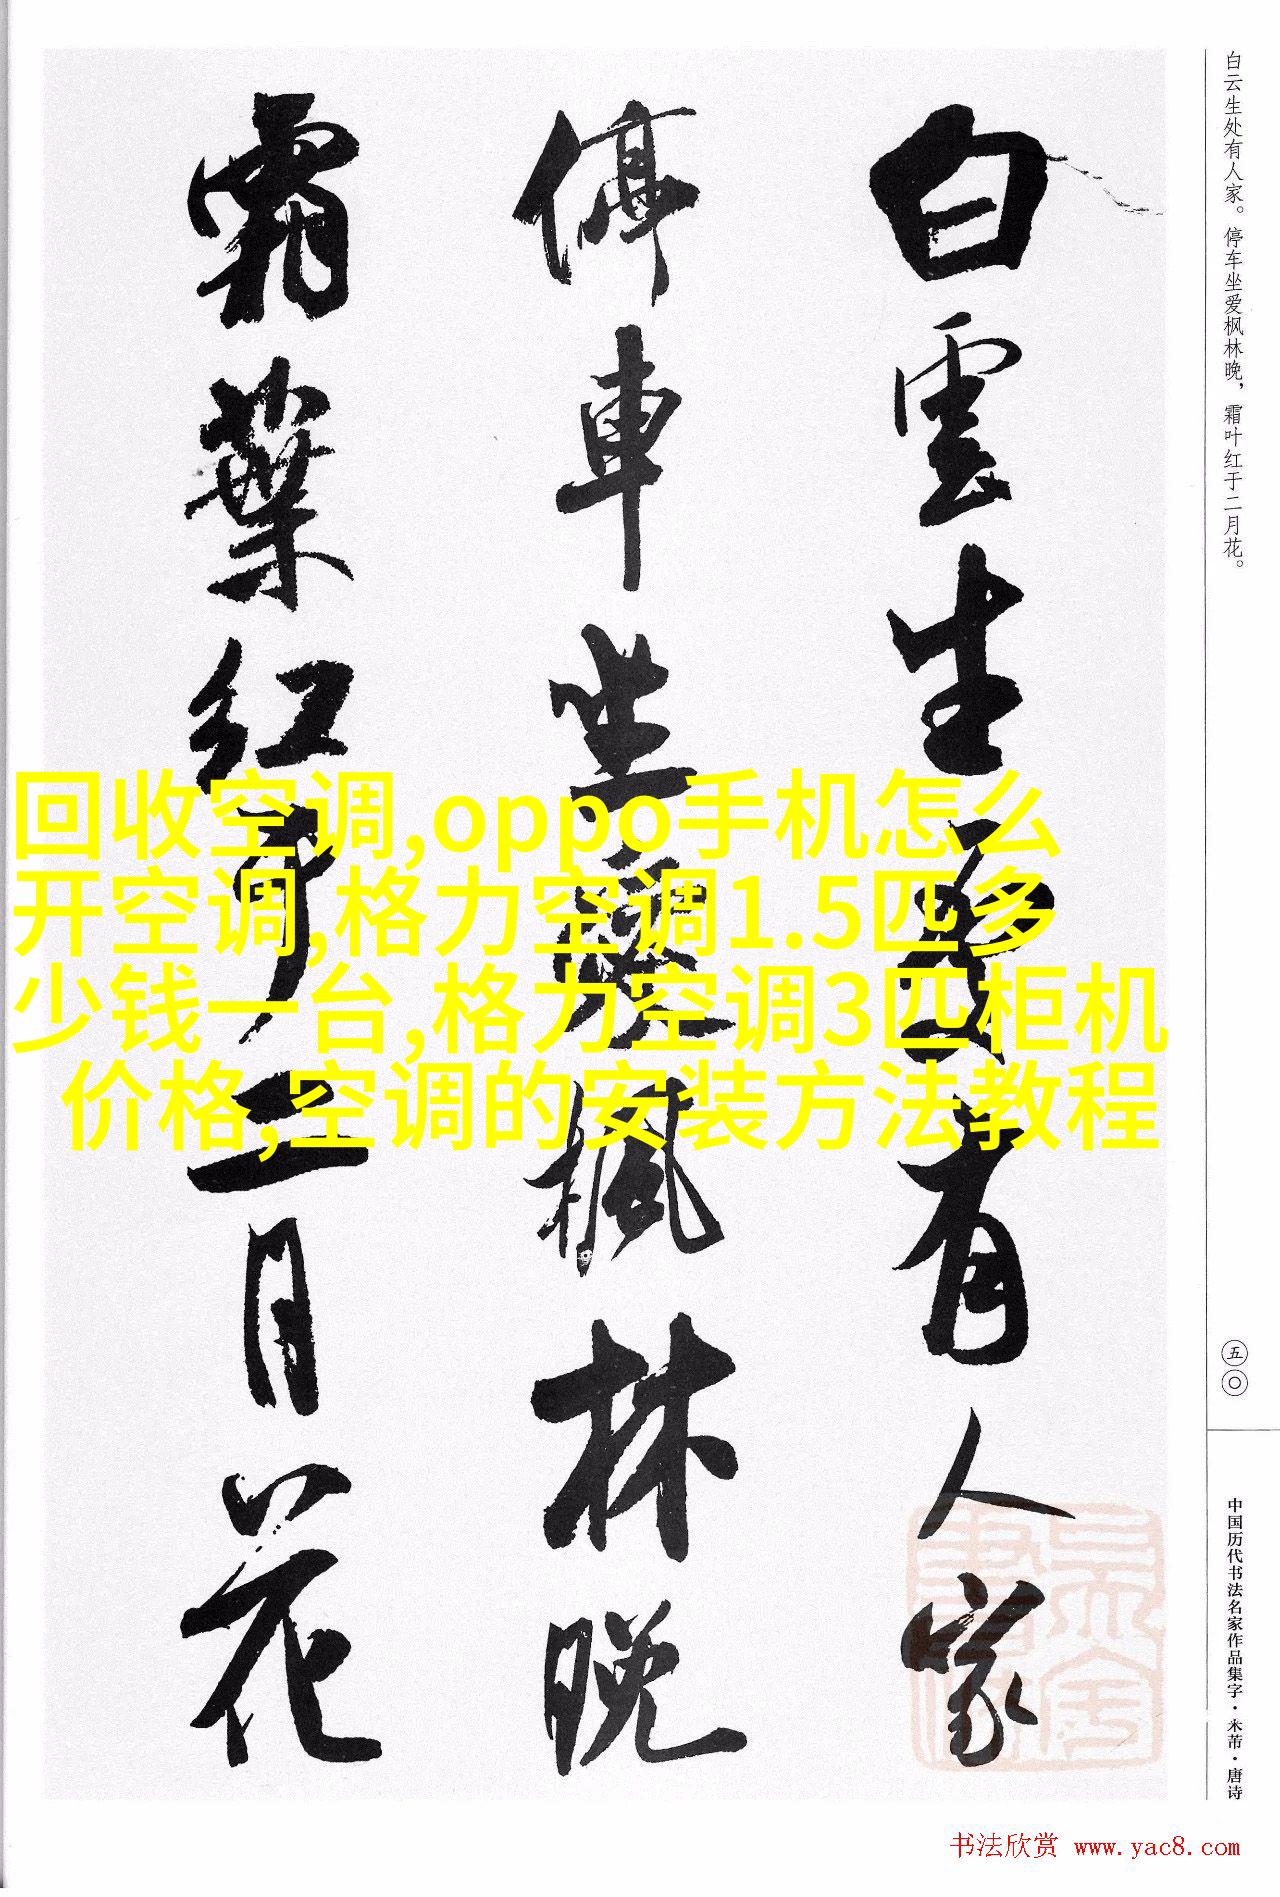 白雲生處有人家
停車坐愛楓林晚
霜葉紅于二月花
回收空调,oppo手机怎么
开空调,格力空调1.5匹多
少钱一台,格力空调3匹柜机
价格,空调的安装方法教程
白云生处有人家。停车坐爱枫林晚，霜叶红于二月花。
五〇
中国历代书法名家作品集字·米芾·唐诗
书法欣赏 www.yac8.com